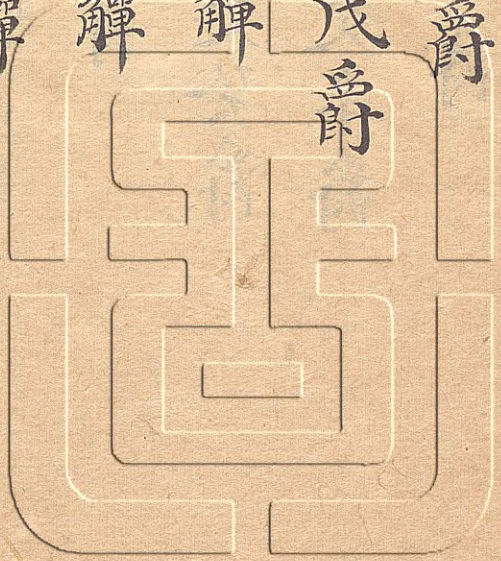 爵
戊爵
觶
觶